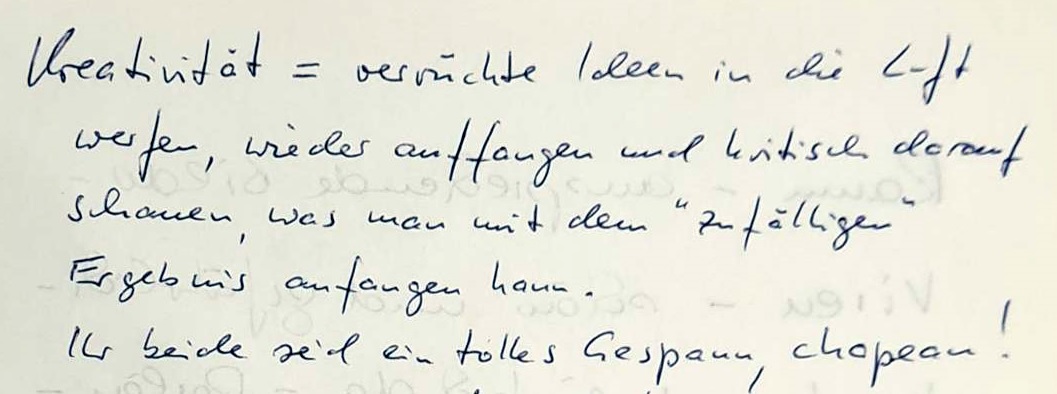 Kreativität = verrückte Ideen in die Luft
werfen, wieder auffangen und kritisch darauf
schauen, was man mit dem "zufälligen"
Ergebnis anfangen kann.
Ihr beide seid ein tolles Gespann, chapeau!